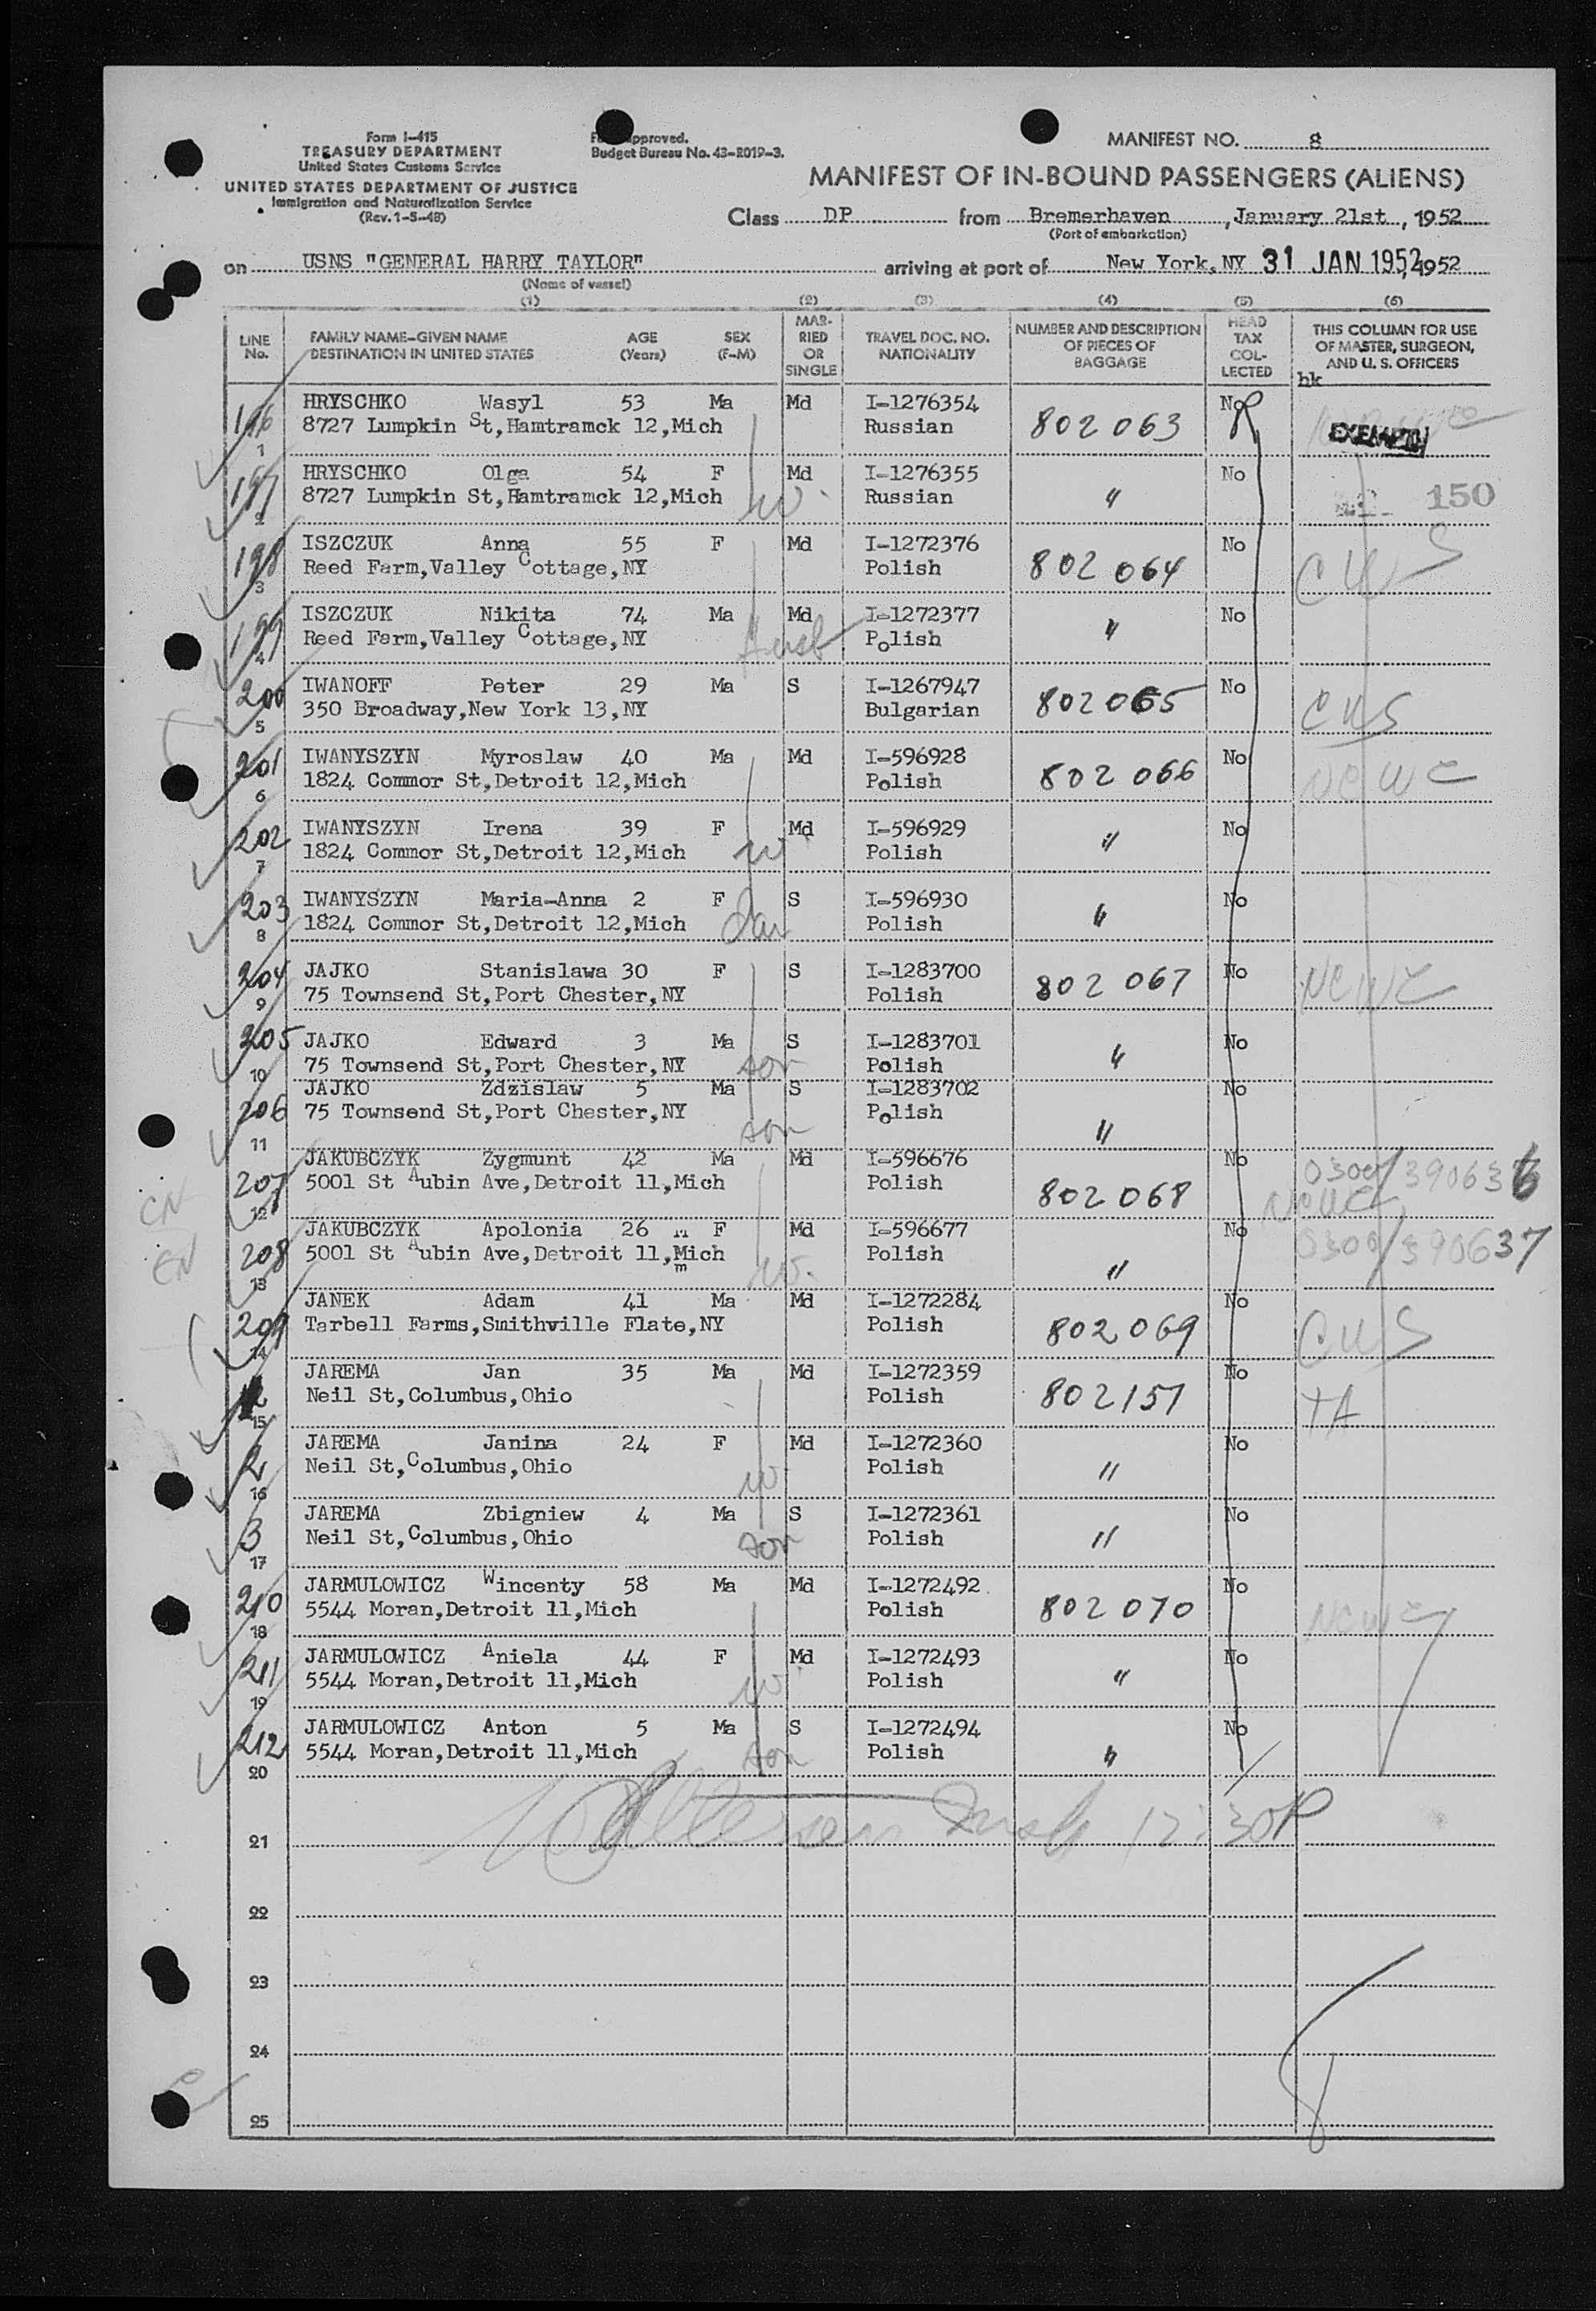 Form I-415
TREASURY DEPARTMENT
United States Customs Service
UNITED STATES DEPARTMENT OF JUSTICE
Immigration and Naturalization Service
(Rev. 1-5-48)
approved.
Budget Bureau No. 43-R019-3.
MANIFEST NO. 8
MANIFEST OF IN-BOUND PASSENGERS (ALIENS)
Class DP from Bremerhaven, January 21st, 1952
(Port of embarkation)
on USNS "GENERAL HARRY TAYLOR" arriving at port of New York, NY 31 JAN 1952, 1952
(Name of vessel)
(1) (2) (3) (4) (5) (6)
LINE No. FAMILY NAME-GIVEN NAME DESTINATION IN UNITED STATES AGE (Years) SEX (F-M) MARRIED OR SINGLE TRAVEL DOC. NO. NATIONALITY NUMBER AND DESCRIPTION OF PIECES OF BAGGAGE HEAD TAX COLLECTED THIS COLUMN FOR USE OF MASTER, SURGEON, AND U. S. OFFICERS
hk
196 HRYSCHKO Wasyl 53 Ma Md I-1276354 802 063 No
1 8727 Lumpkin St,Hamtramck 12,Mich Russian EXEMPT
197 HRYSCHKO Olga 54 F Md I-1276355 " No
2 8727 Lumpkin St,Hamtramck 12,Mich w. Russian 150
198 ISZCZUK Anna 55 F Md I-1272376 802 064 No
3 Reed Farm,Valley Cottage,NY Polish CWS
199 ISZCZUK Nikita 74 Ma Md I-1272377 " No
4 Reed Farm,Valley Cottage,NY Husb Polish
200 IWANOFF Peter 29 Ma S I-1267947 802065 No
5 350 Broadway,New York 13,NY Bulgarian CWS
201 IWANYSZYN Myroslaw 40 Ma Md I-596928 802 066 No
6 1824 Commor St,Detroit 12,Mich Polish NCWC
202 IWANYSZYN Irena 39 F Md I-596929 " No
7 1824 Commor St,Detroit 12,Mich w. Polish
203 IWANYSZYN Maria-Anna 2 F S I-596930 " No
8 1824 Commor St,Detroit 12,Mich dau Polish
204 JAJKO Stanislawa 30 F S I-1283700 802 067 No
9 75 Townsend St,Port Chester,NY Polish NCWC
205 JAJKO Edward 3 Ma S I-1283701 " No
10 75 Townsend St,Port Chester,NY son Polish
JAJKO Zdzislaw 5 Ma S I-1283702 No
206 75 Townsend St,Port Chester,NY son Polish "
11
JAKUBCZYK Zygmunt 42 Ma Md I-596676 No 0300/390636
207 5001 St Aubin Ave,Detroit 11,Mich Polish 802068 NCWC
12
CN
JAKUBCZYK Apolonia 26 F Md I-596677 No 0300/390637
208 5001 St Aubin Ave,Detroit 11,Mich w. Polish "
13 m
EN
JANEK Adam 41 Ma Md I-1272284 No
209 Tarbell Farms,Smithville Flate,NY Polish 802069 CWS
14
JAREMA Jan 35 Ma Md I-1272359 No
Neil St,Columbus,Ohio Polish 802151 TA
15
JAREMA Janina 24 F Md I-1272360 No
2 Neil St,Columbus,Ohio w Polish "
16
JAREMA Zbigniew 4 Ma S I-1272361 No
3 Neil St,Columbus,Ohio son Polish "
17
JARMULOWICZ Wincenty 58 Ma Md I-1272492 No
210 5544 Moran,Detroit 11,Mich Polish 802070 NCWC
18
JARMULOWICZ Aniela 44 F Md I-1272493 No
211 5544 Moran,Detroit 11,Mich w. Polish "
19
JARMULOWICZ Anton 5 Ma S I-1272494 No
212 5544 Moran,Detroit 11,Mich son Polish "
20
21 12:30P
22
23
24
25
8